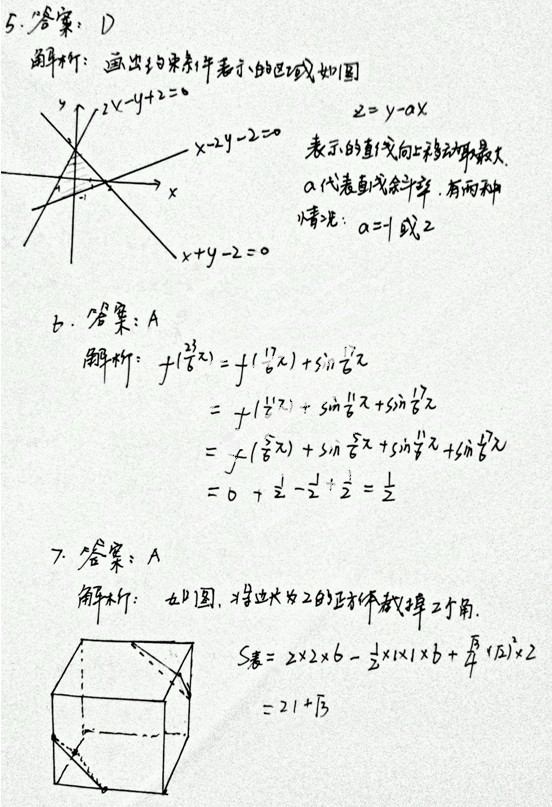 5. 答案: D
解析: 画出约束条件表示的区域如图
y
2x-y+2=0
x-2y-2=0
x
-1
x+y-2=0
z=y-ax
表示的直线向上移动取最大.
a代表直线斜率. 有两种
情况: a=-1或2
6. 答案: A
解析: f(23/6π)=f(17/6π)+sin17/6π
=f(11/6π)+sin11/6π+sin17/6π
=f(5/6π)+sin5/6π+sin11/6π+sin17/6π
=0+1/2-1/2+1/2=1/2
7. 答案: A
解析: 如图, 将边长为2的正方体截掉2个角.
S表=2×2×6-1/2×1×1×6+√3/4×(√2)²×2
=21+√3